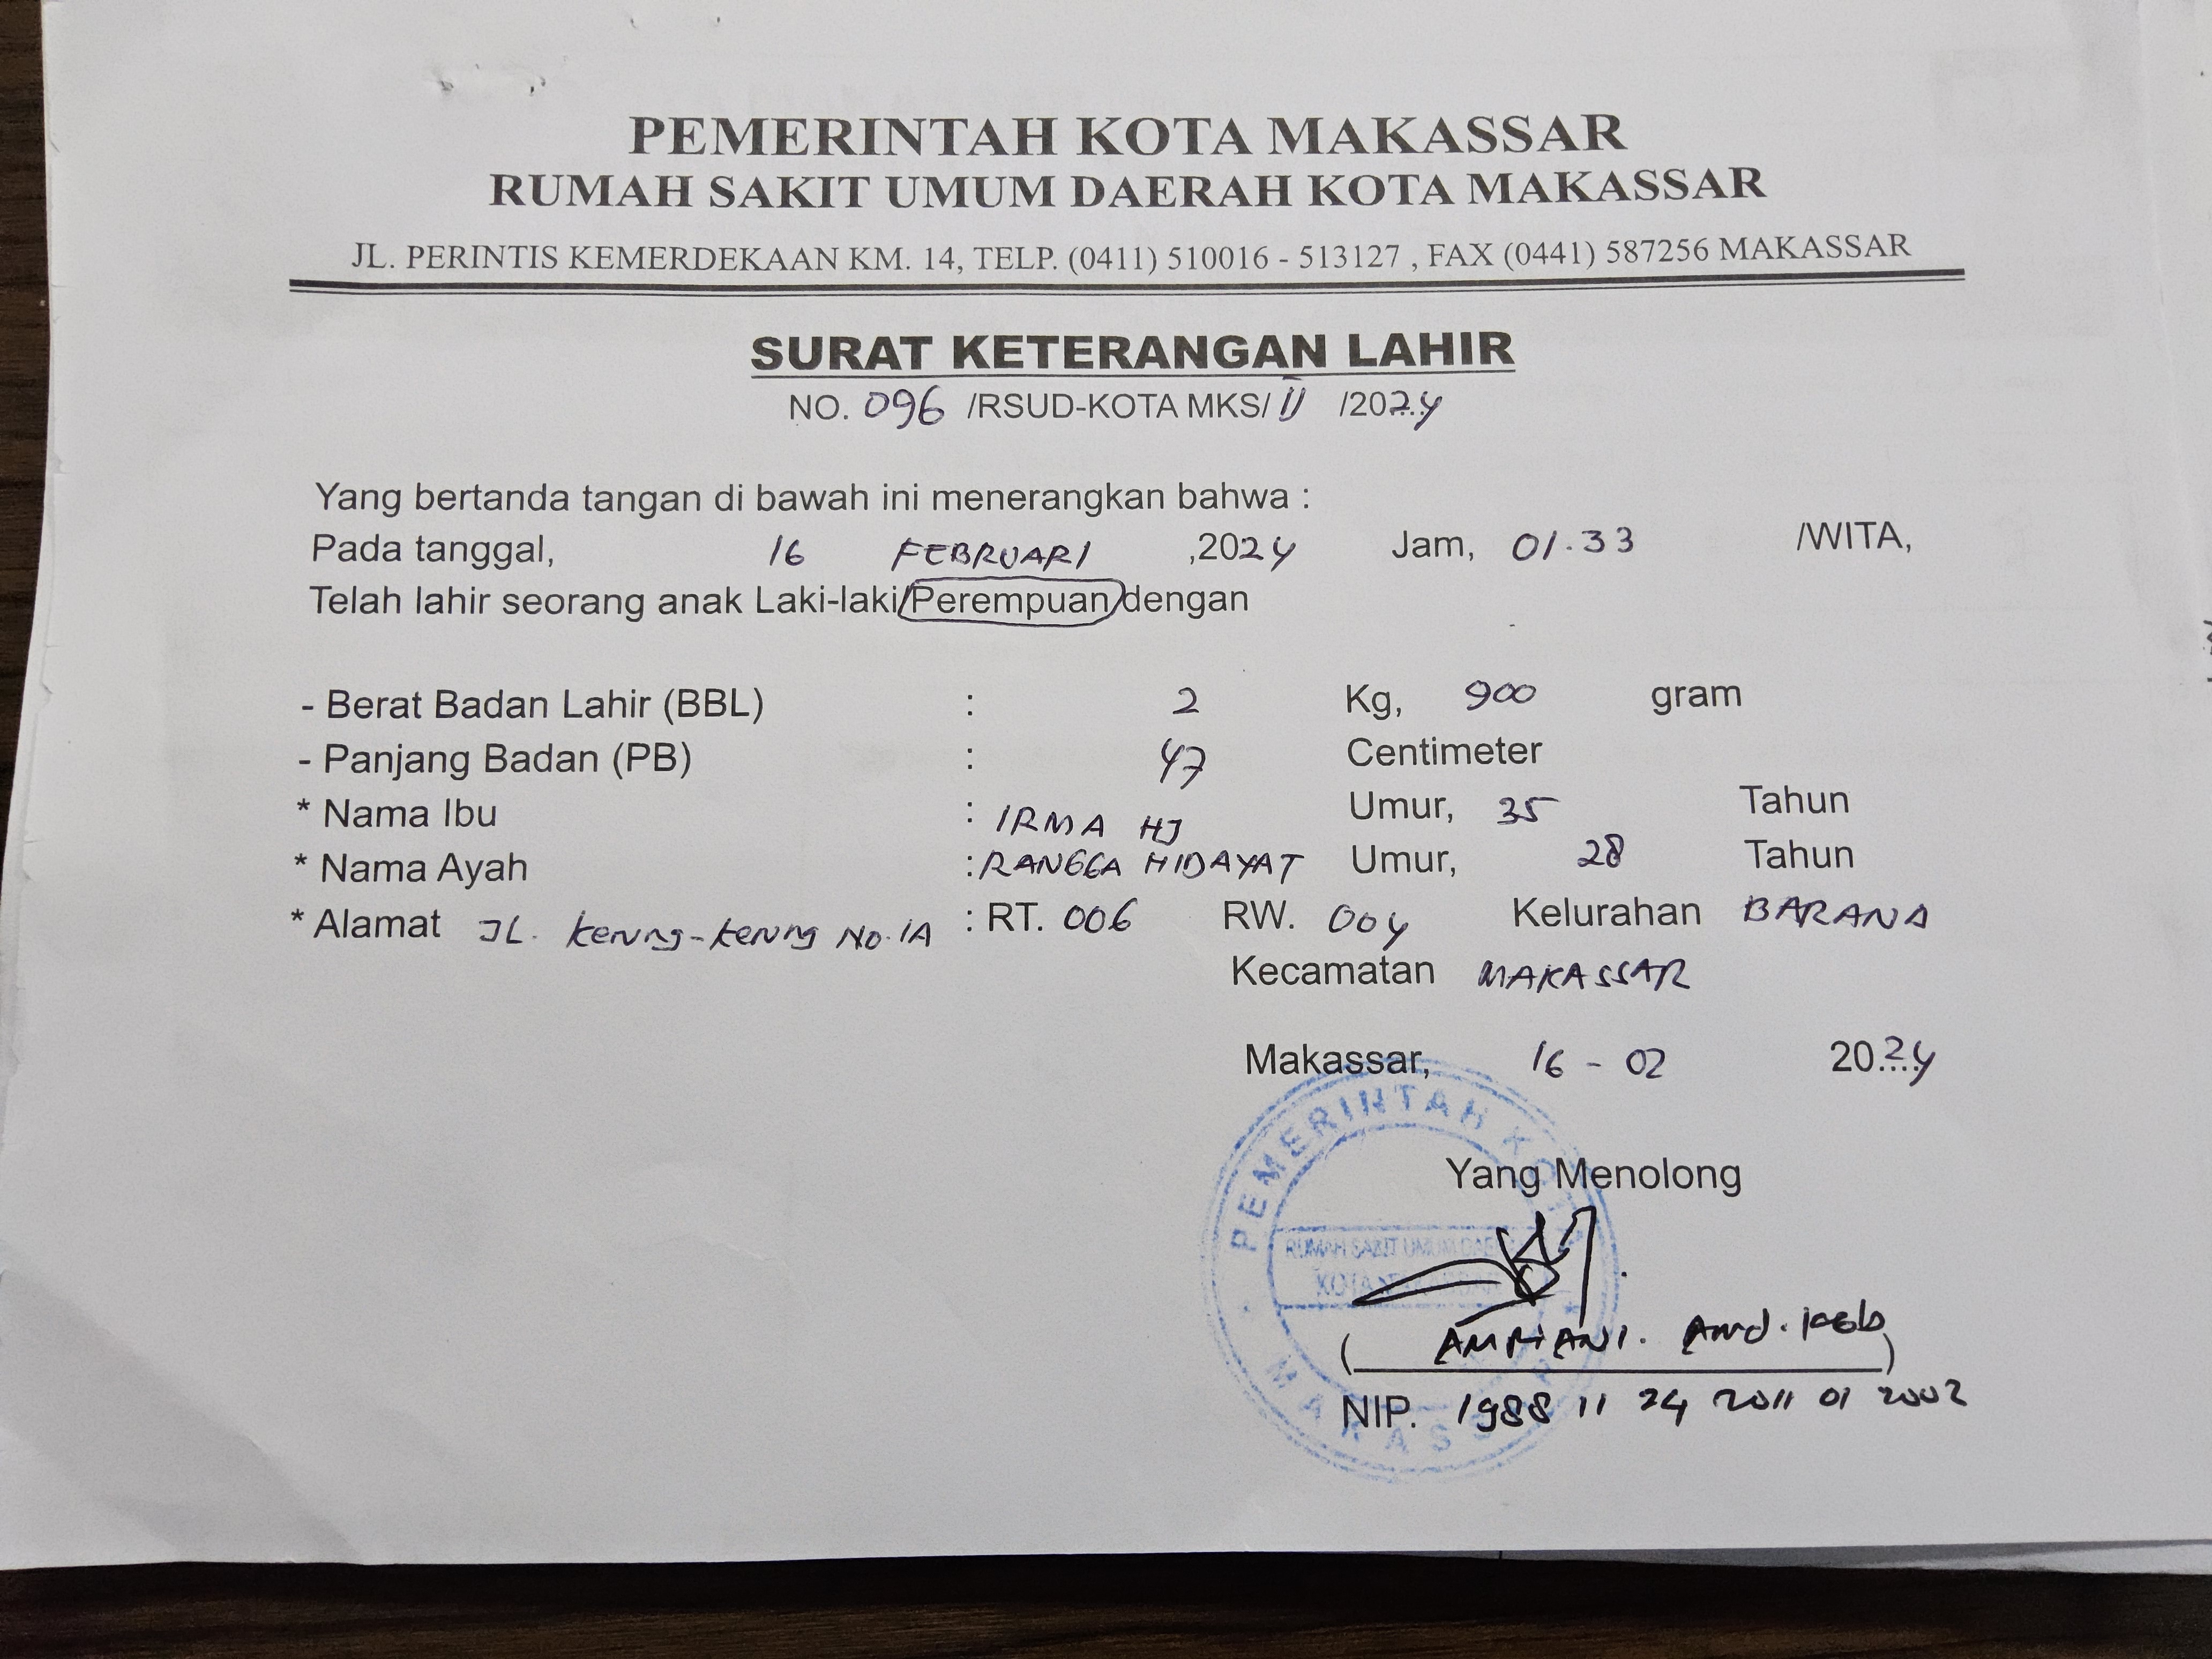 PEMERINTAH KOTA MAKASSAR
RUMAH SAKIT UMUM DAERAH KOTA MAKASSAR
JL. PERINTIS KEMERDEKAAN KM. 14, TELP. (0411) 510016 - 513127 , FAX (0441) 587256 MAKASSAR
SURAT KETERANGAN LAHIR
NO. 096 /RSUD-KOTA MKS/ II /2024
Yang bertanda tangan di bawah ini menerangkan bahwa :
Pada tanggal, 16 FEBRUARI ,2024 Jam, 01.33 /WITA,
Telah lahir seorang anak Laki-laki/Perempuan dengan
- Berat Badan Lahir (BBL) : 2 Kg, 900 gram
- Panjang Badan (PB) : 47 Centimeter
* Nama Ibu : IRMA HJ Umur, 35 Tahun
* Nama Ayah : RANGGA HIDAYAT Umur, 28 Tahun
* Alamat JL. No.1A : RT. 006 RW. 004 Kelurahan BARANA
Kecamatan MAKASSAR
Makassar, 16 - 02 2024
Yang Menolong
PEMERINTAH KOTA
RUMAH SAKIT UMUM DAE
KOTA
MAKASS
( Amd. Keb )
NIP. 1988 11 24 2011 01 2002